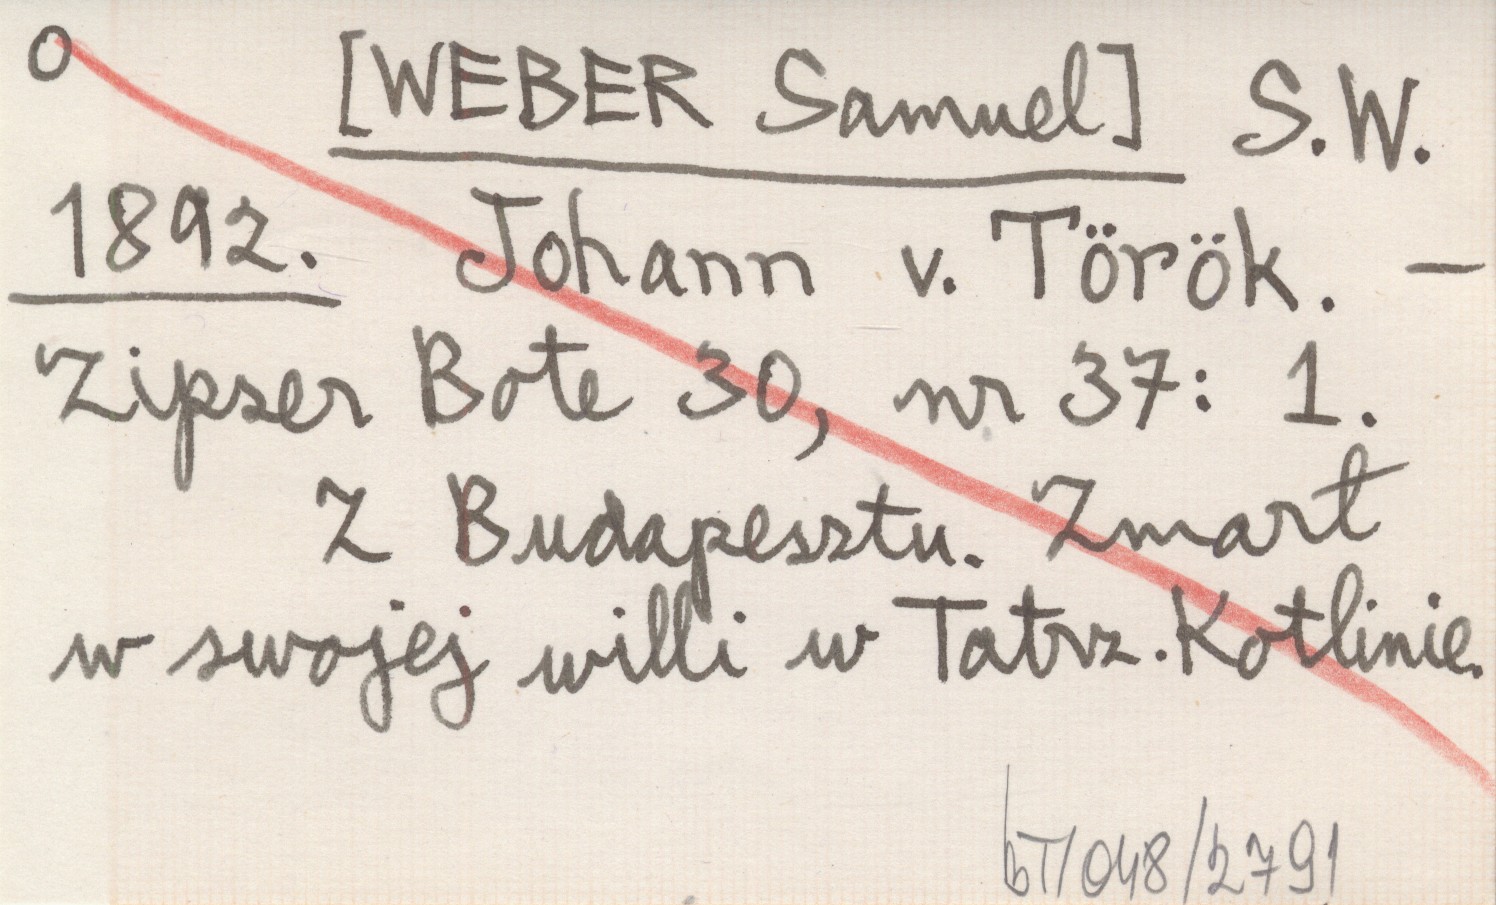 O [WEBER Samuel] S.W.
1892. Johann v. Török. —
Zipser Bote 30, nr 37: 1.
Z Budapesztu. Zmart
w swojej willi w Tatrz. Kotlinie.
bT/048/2791